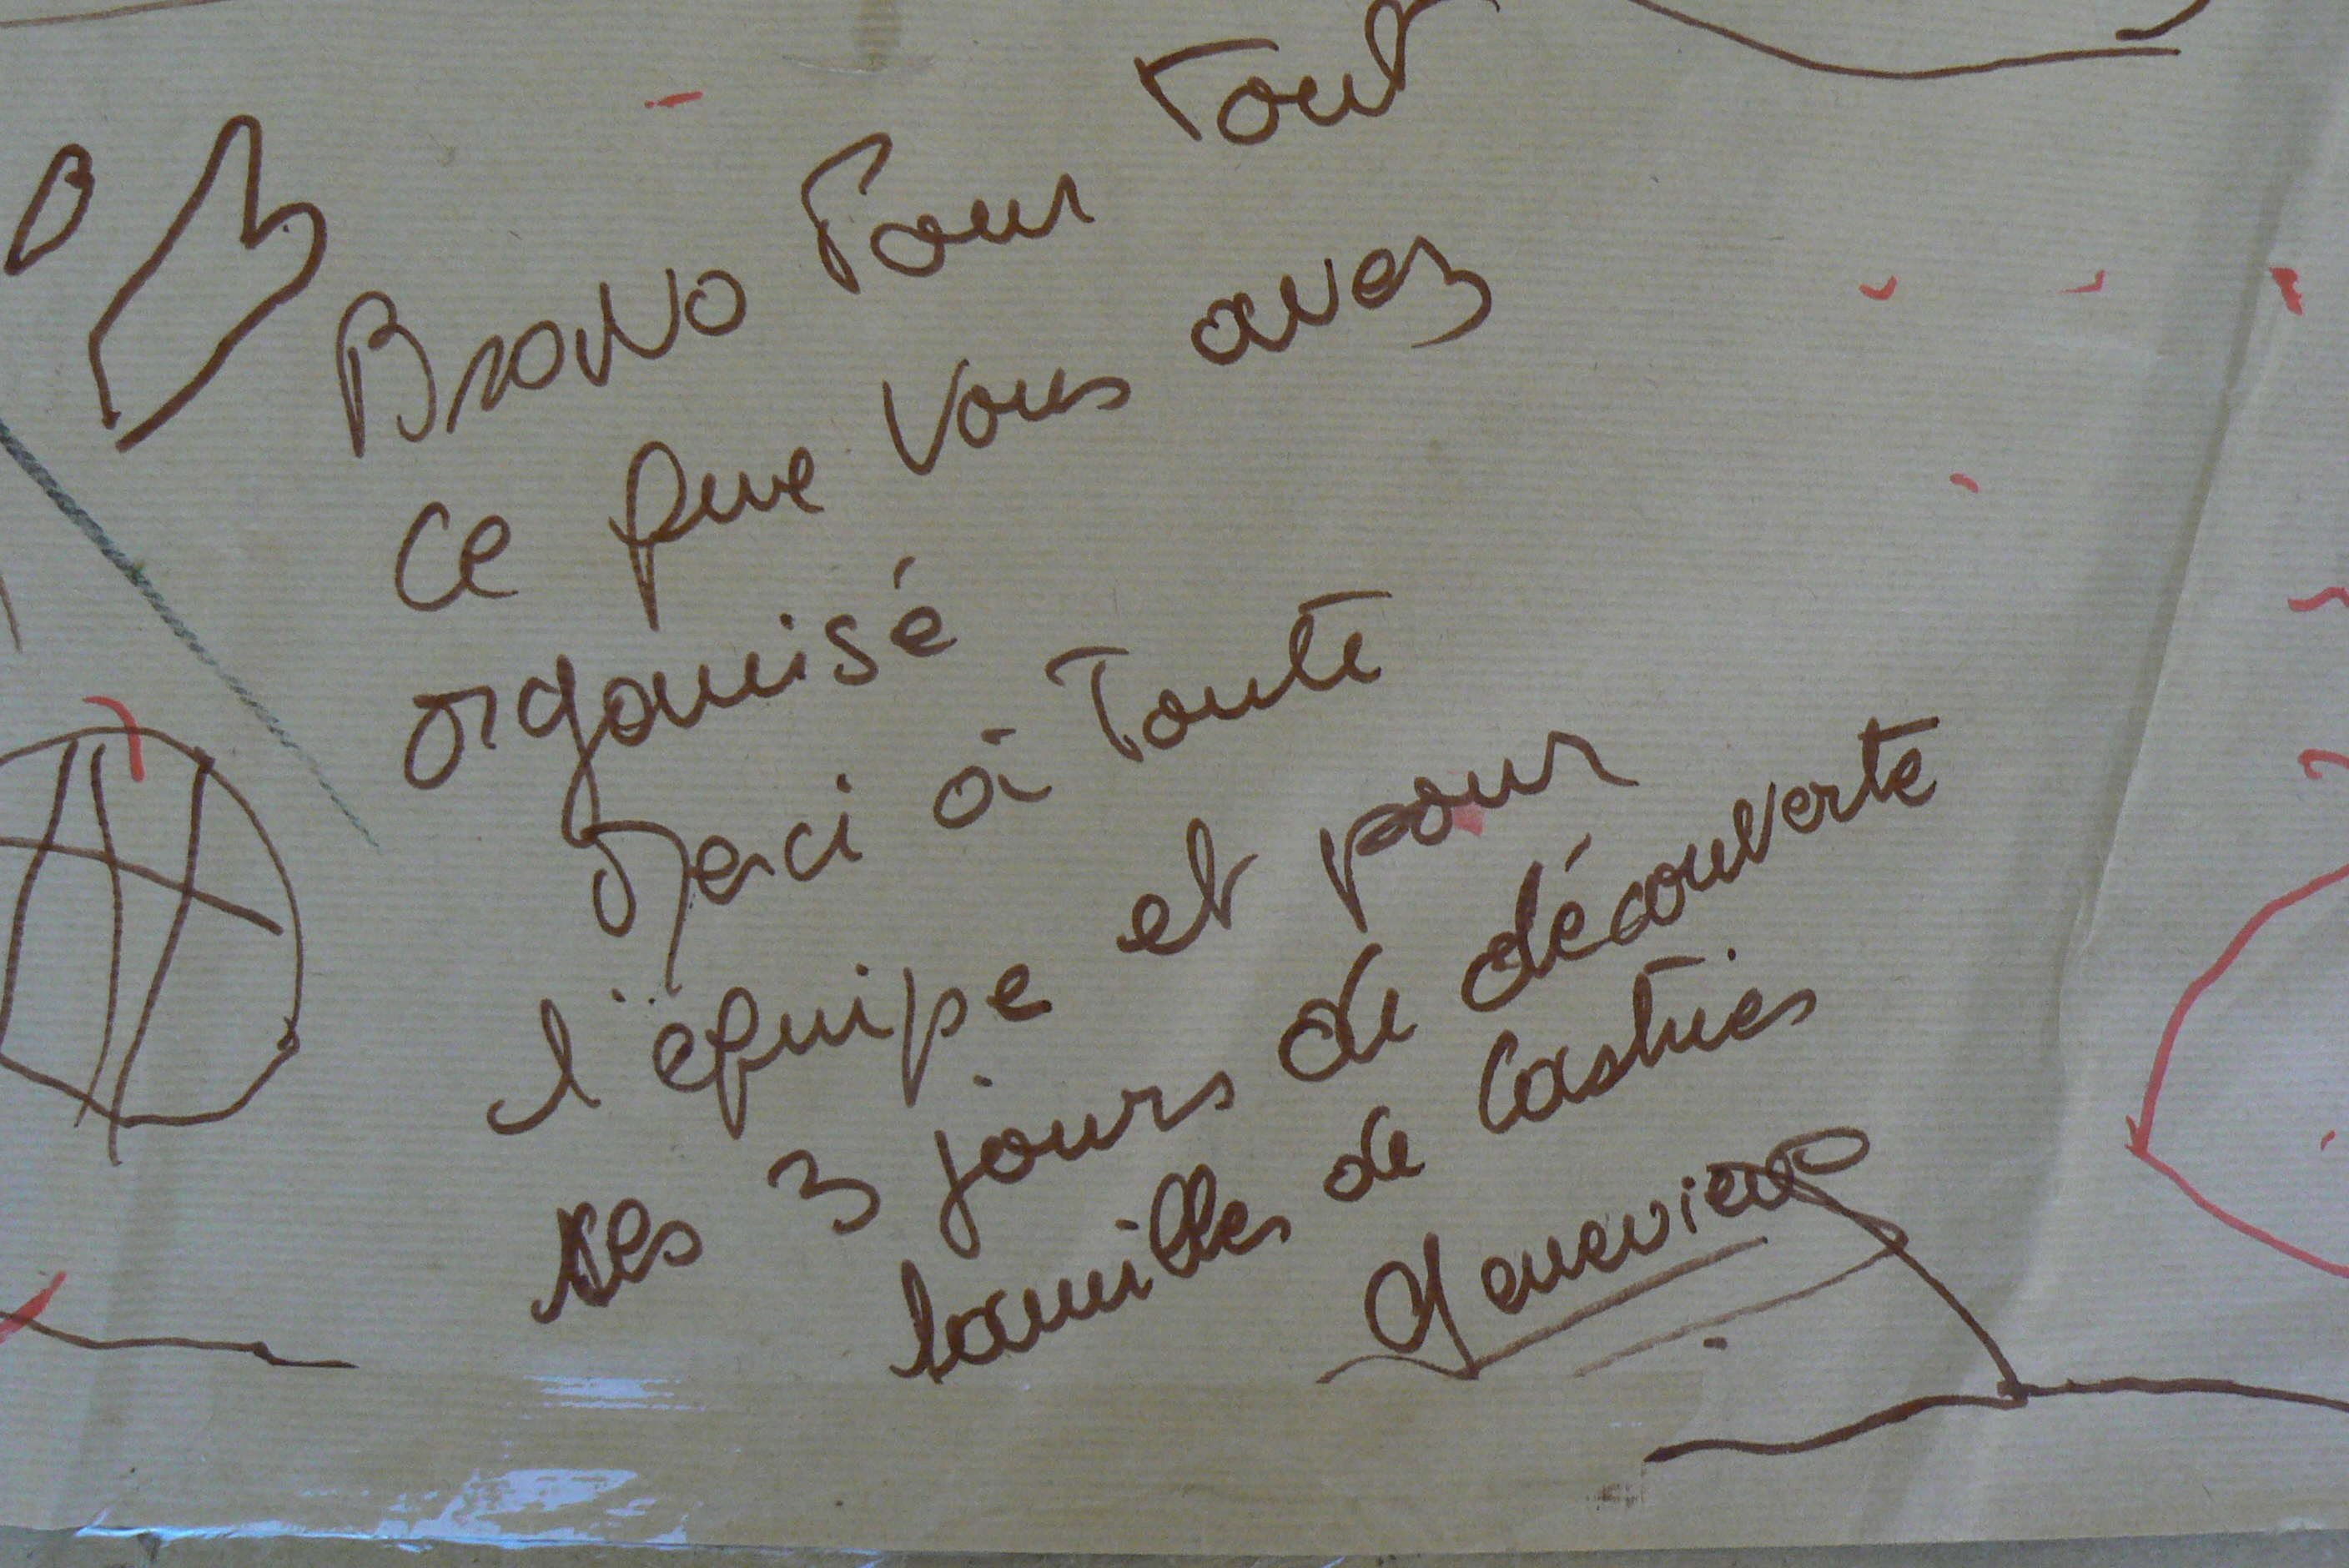 Bravo Pour Tout
ce que vous avez
organisé
Merci à Toute
l'équipe et pour
ces 3 jours de découverte
familles de Castries
Geneviève